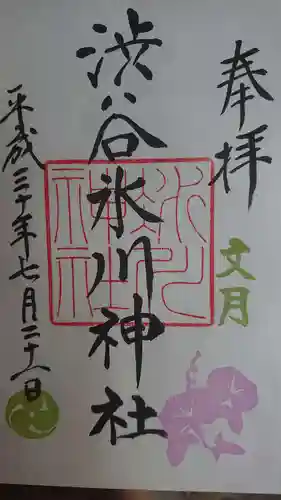 奉拝
文月
渋谷氷川神社
氷川神社
平成三十年七月二十一日